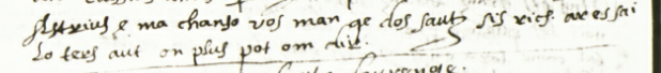 Astrius e ma chanso vos man qe dos sautz sis rics ar essai
Lo ters aut on plus pot om dir.